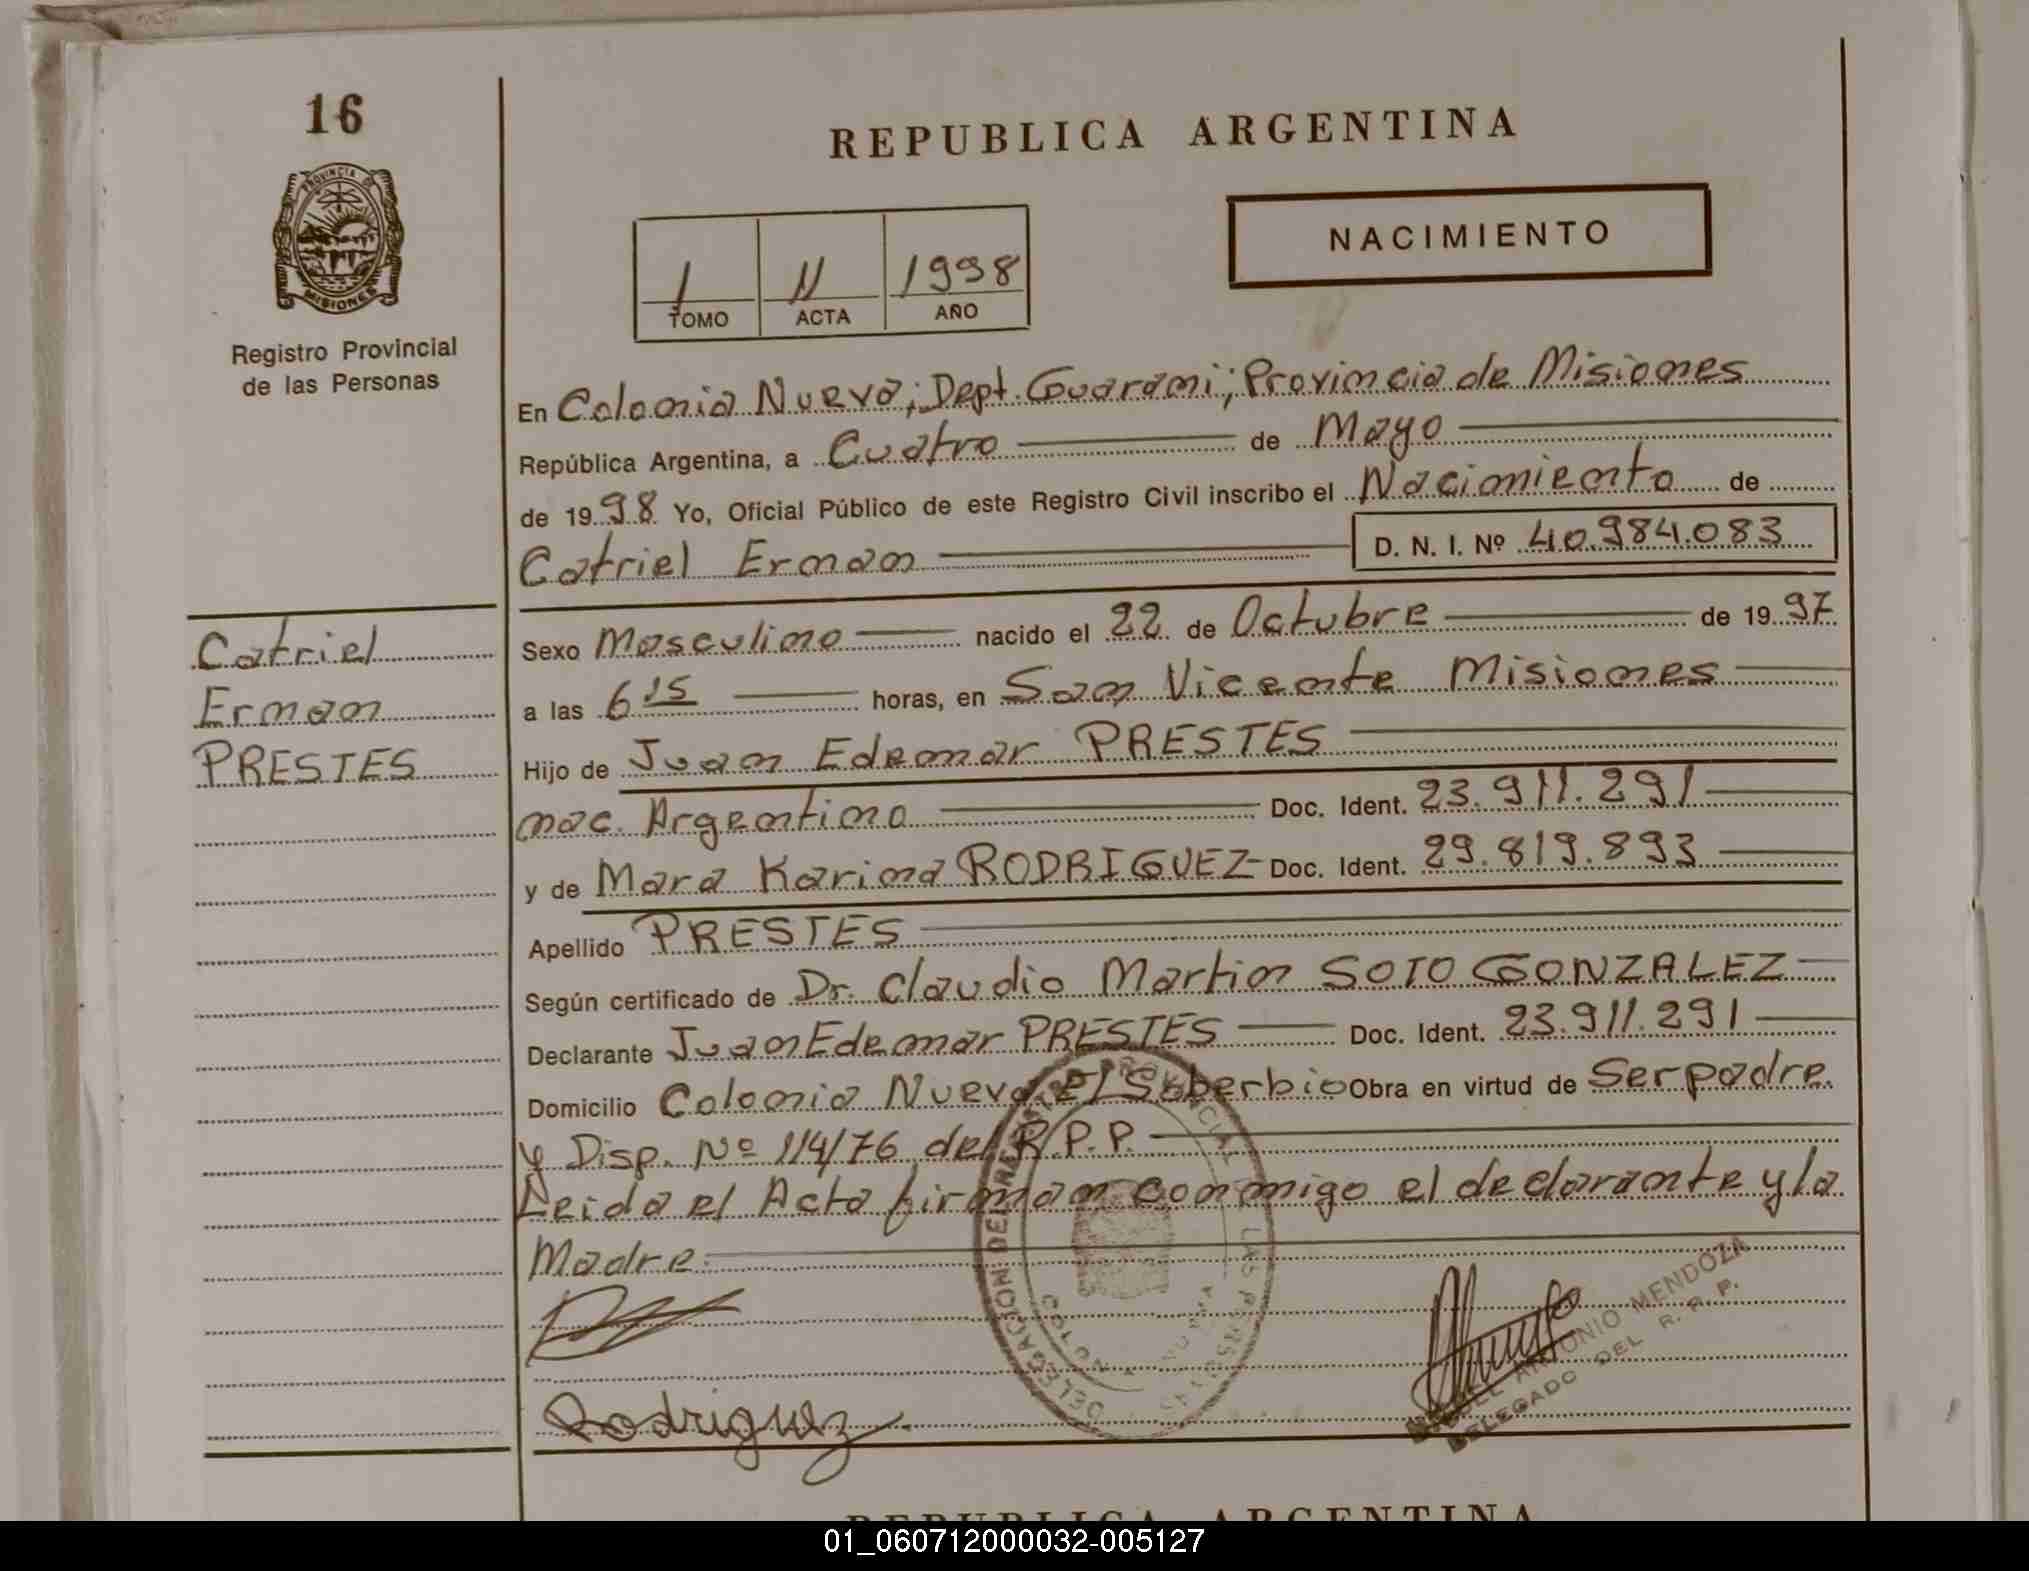 16
PROVINCIA DE
MISIONES
Registro Provincial
de las Personas
REPUBLICA ARGENTINA
NACIMIENTO
1 11 1998
TOMO ACTA AÑO
En Colonia Nueva; Dept. Guarani; Provincia de Misiones
República Argentina, a Cuatro de Mayo
de 1998 Yo, Oficial Público de este Registro Civil inscribo el Nacimiento de
Catriel Ernan D. N. I. Nº 40.984.083
Catriel
Ernan
PRESTES
Sexo Masculino nacido el 22 de Octubre de 1997
a las 6 15 horas, en San Vicente Misiones
Hijo de Juan Edemar PRESTES
nac. Argentino Doc. Ident. 23.911.291
y de Mara Karina RODRIGUEZ- Doc. Ident. 29.819.893
Apellido PRESTES
Según certificado de Dr. Claudio Martin SOTO GONZALEZ
Declarante Juan Edemar PRESTES Doc. Ident. 23.911.291
Domicilio Colonia Nueva El Soberbio Obra en virtud de Ser padre
y Disp. Nº 114/76 del R.P.P.
Leida el Acta firman conmigo el declarante y la
Madre
Rodriguez
ANTONIO MENDOZA
DELEGADO DEL R. P. P.
REPUBLICA ARGENTINA
01_060712000032-005127